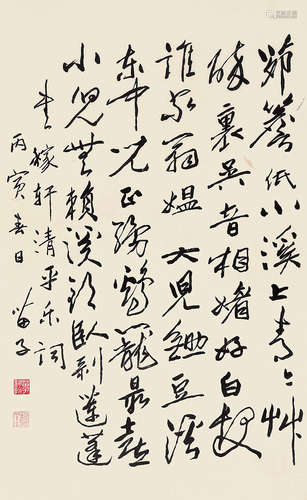 茅簷低小溪上青々艸
醉裏吳音相媚好白髮
誰家翁媼大兒鋤豆溪
東中兒正織鷄籠最喜
小兒無賴溪頭臥剝蓮蓬
書稼軒清平樂詞
丙寅春日 苗子